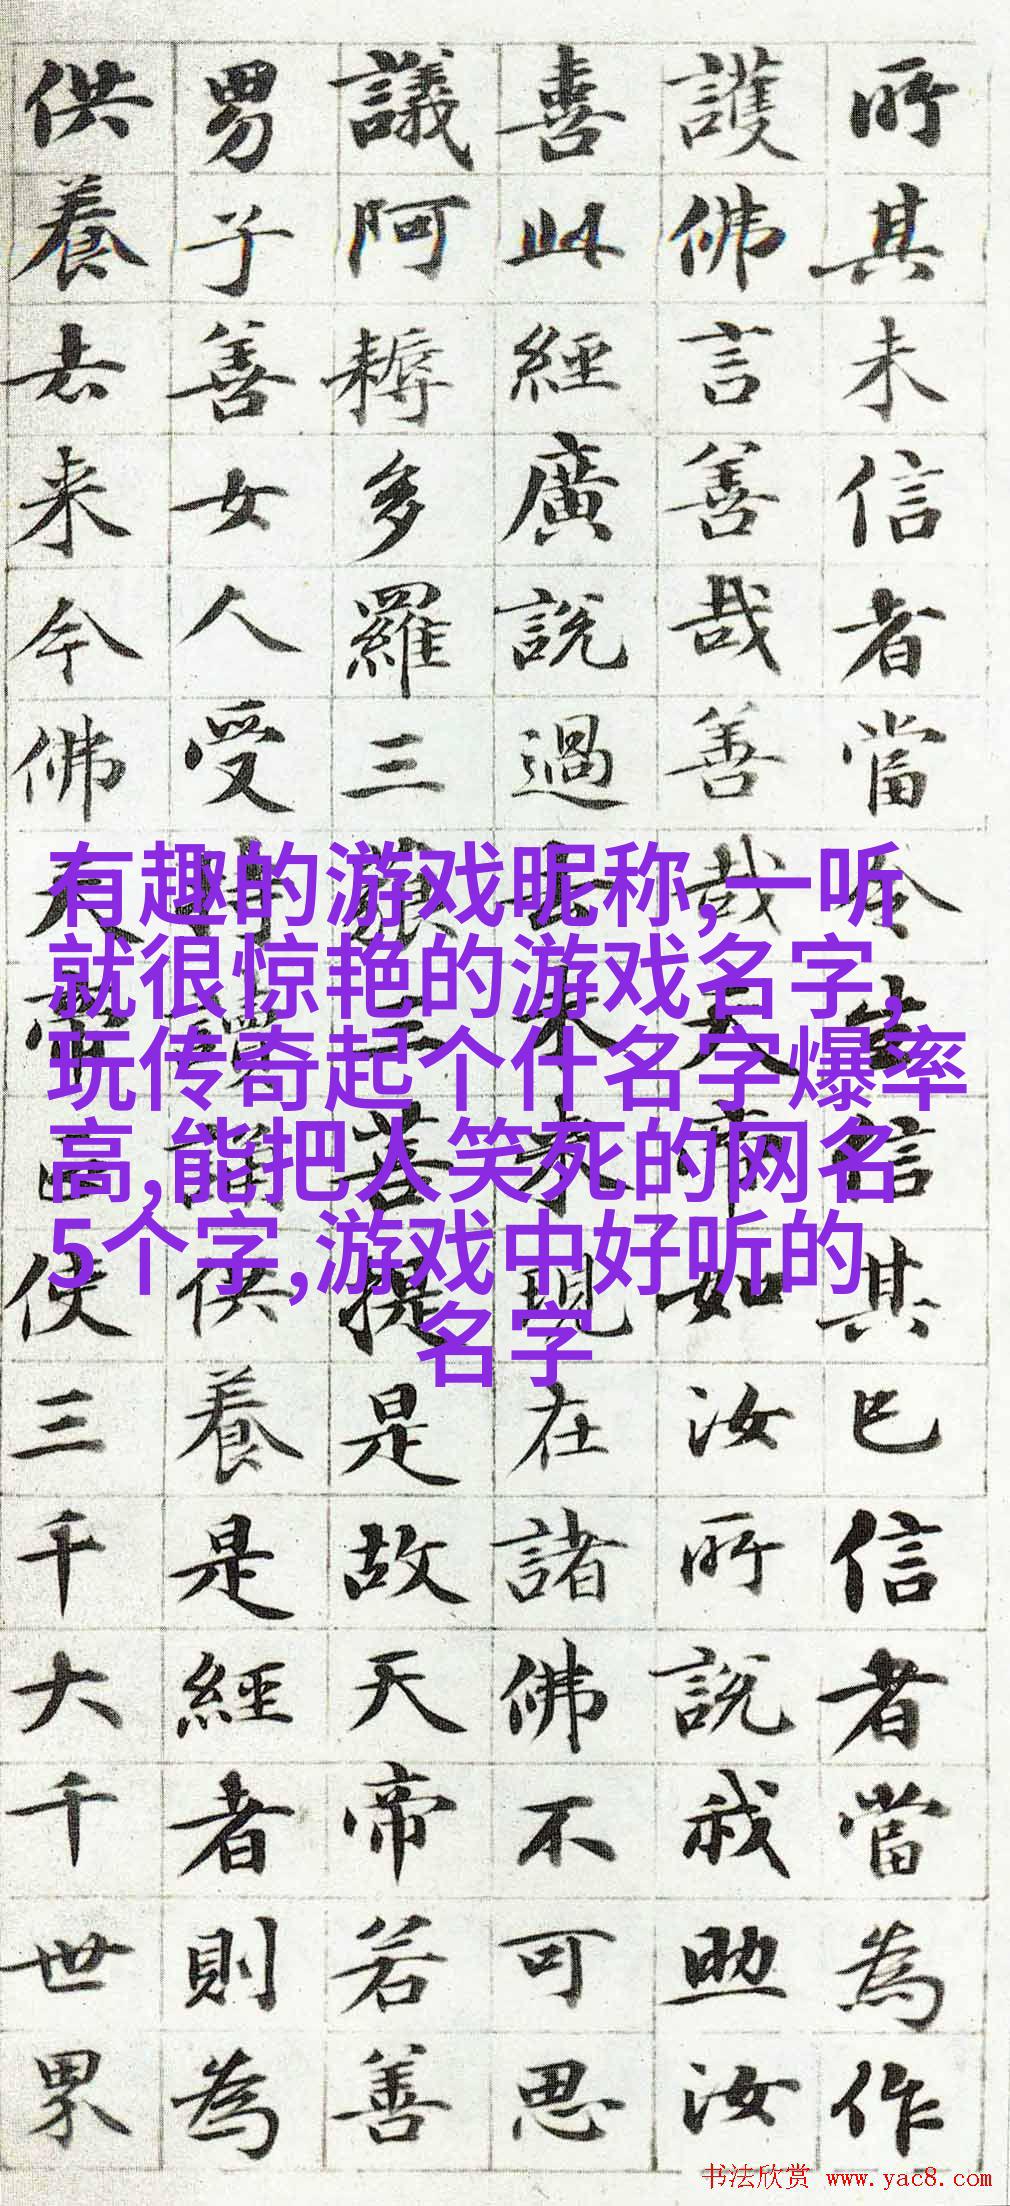 所其未信者當令生信其已信者當為作
護佛言善哉善哉天帝如汝所說我助汝
喜此經廣說過去未來現在諸佛不可思
議阿耨多羅三藐三菩提是故天帝若善
男子善女人受持讀誦供養是經者則為
供養去來今佛天帝正使三千大千世界
有趣的游戏昵称,一听
就很惊艳的游戏名字,
玩传奇起个什名字爆率
高,能把人笑死的网名
5个字,游戏中好听的
名字
书法欣赏 www.yac8.com